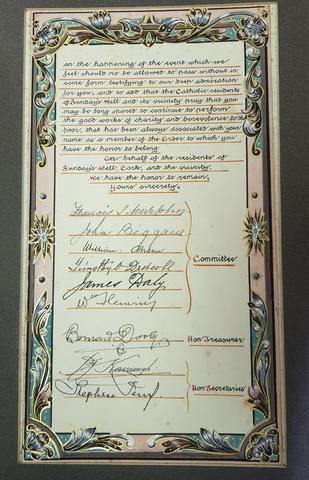 on the happening of the event which we
feel should no be allowed to pass without in
some form testifying to our deep admiration
for you, and to add that the Catholic residents
of Sunday's Well and its vicinity pray that you
may be long spared to continue to perform
the good works of charity and benevolence to the
poor, that has been always associated with your
name as a member of the Order to which you
have the honor to belong
On behalf of the residents of
Sunday's Well, Cork, and the vicinity,
We have the honor to remain,
Yours sincerely,
Francis S. Murphy
John
William Ahern
Timothy O Driscoll
Committee
James Daly
Wm Fleming
Hon Treasurer
Kavanagh
Hon Secretaries
Stephen